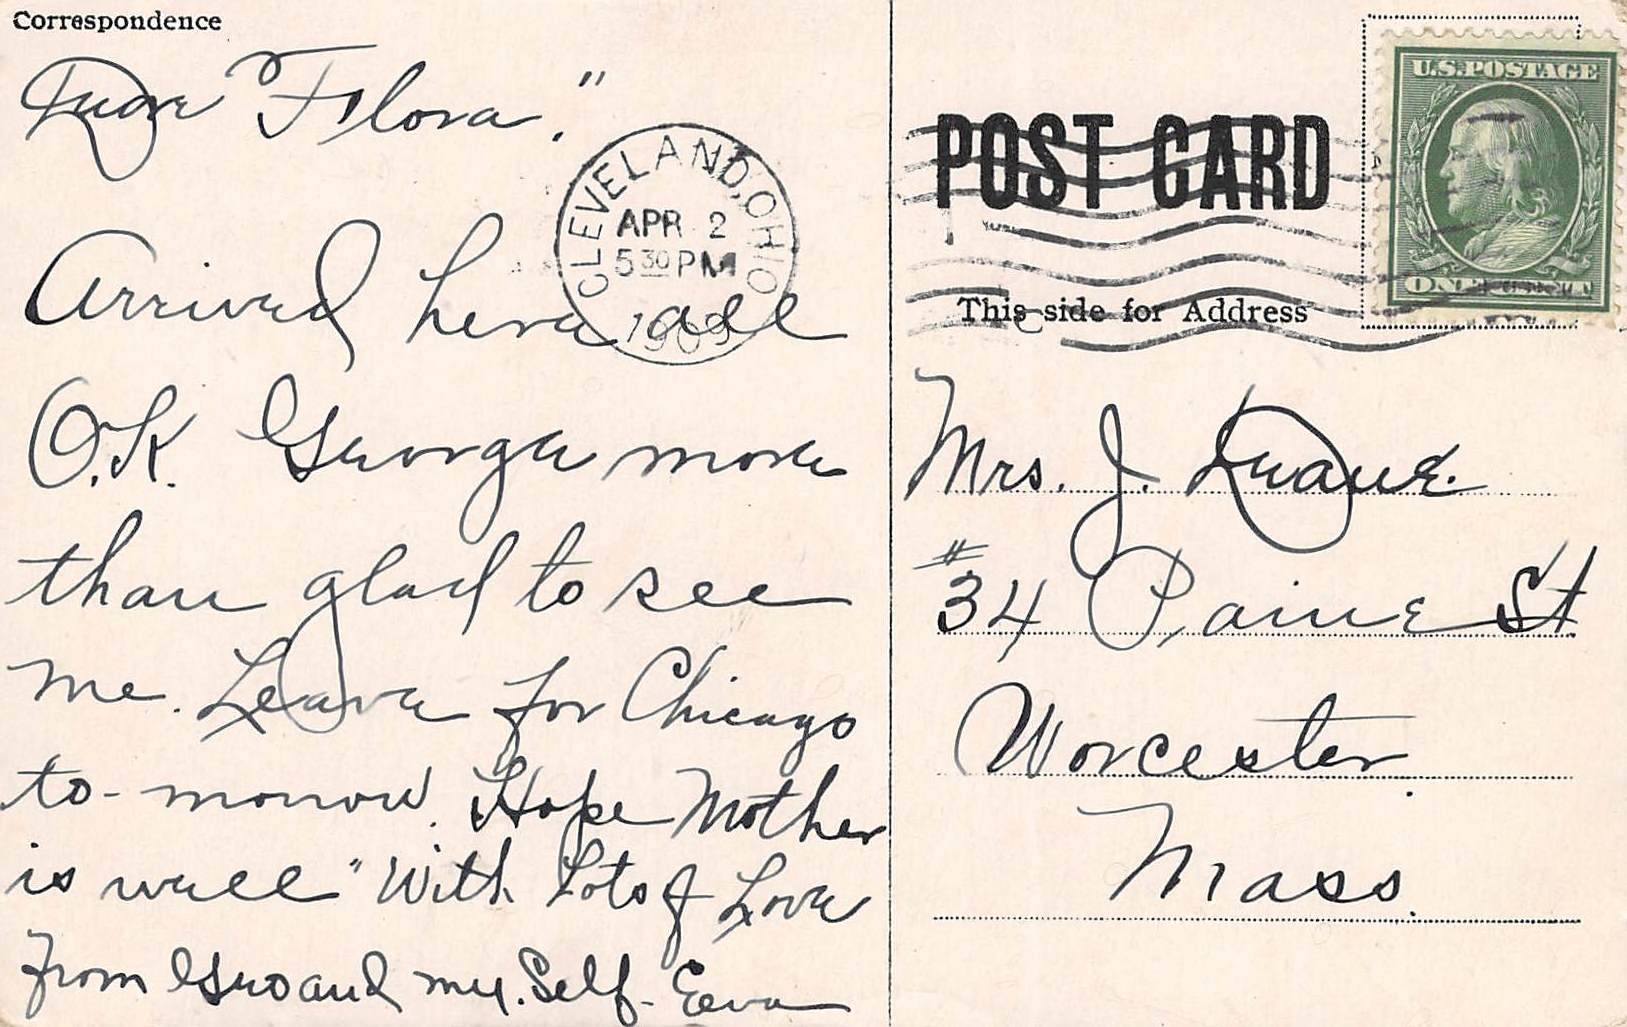 Correspondence
Dear "Flora."
Arrived here all
O.K. George more
than glad to see
me. Leave for Chicago
to-morrow. Hope Mother
is well" With Lots of Love
From Geo and my. Self- Eeva
CLEVELAND, OHIO
APR 2
5 30 PM
1909
POST CARD
This side for Address
U.S. POSTAGE
ONE CENT
Mrs. J. Duane.
#34 Paine St
Worcester
Mass.